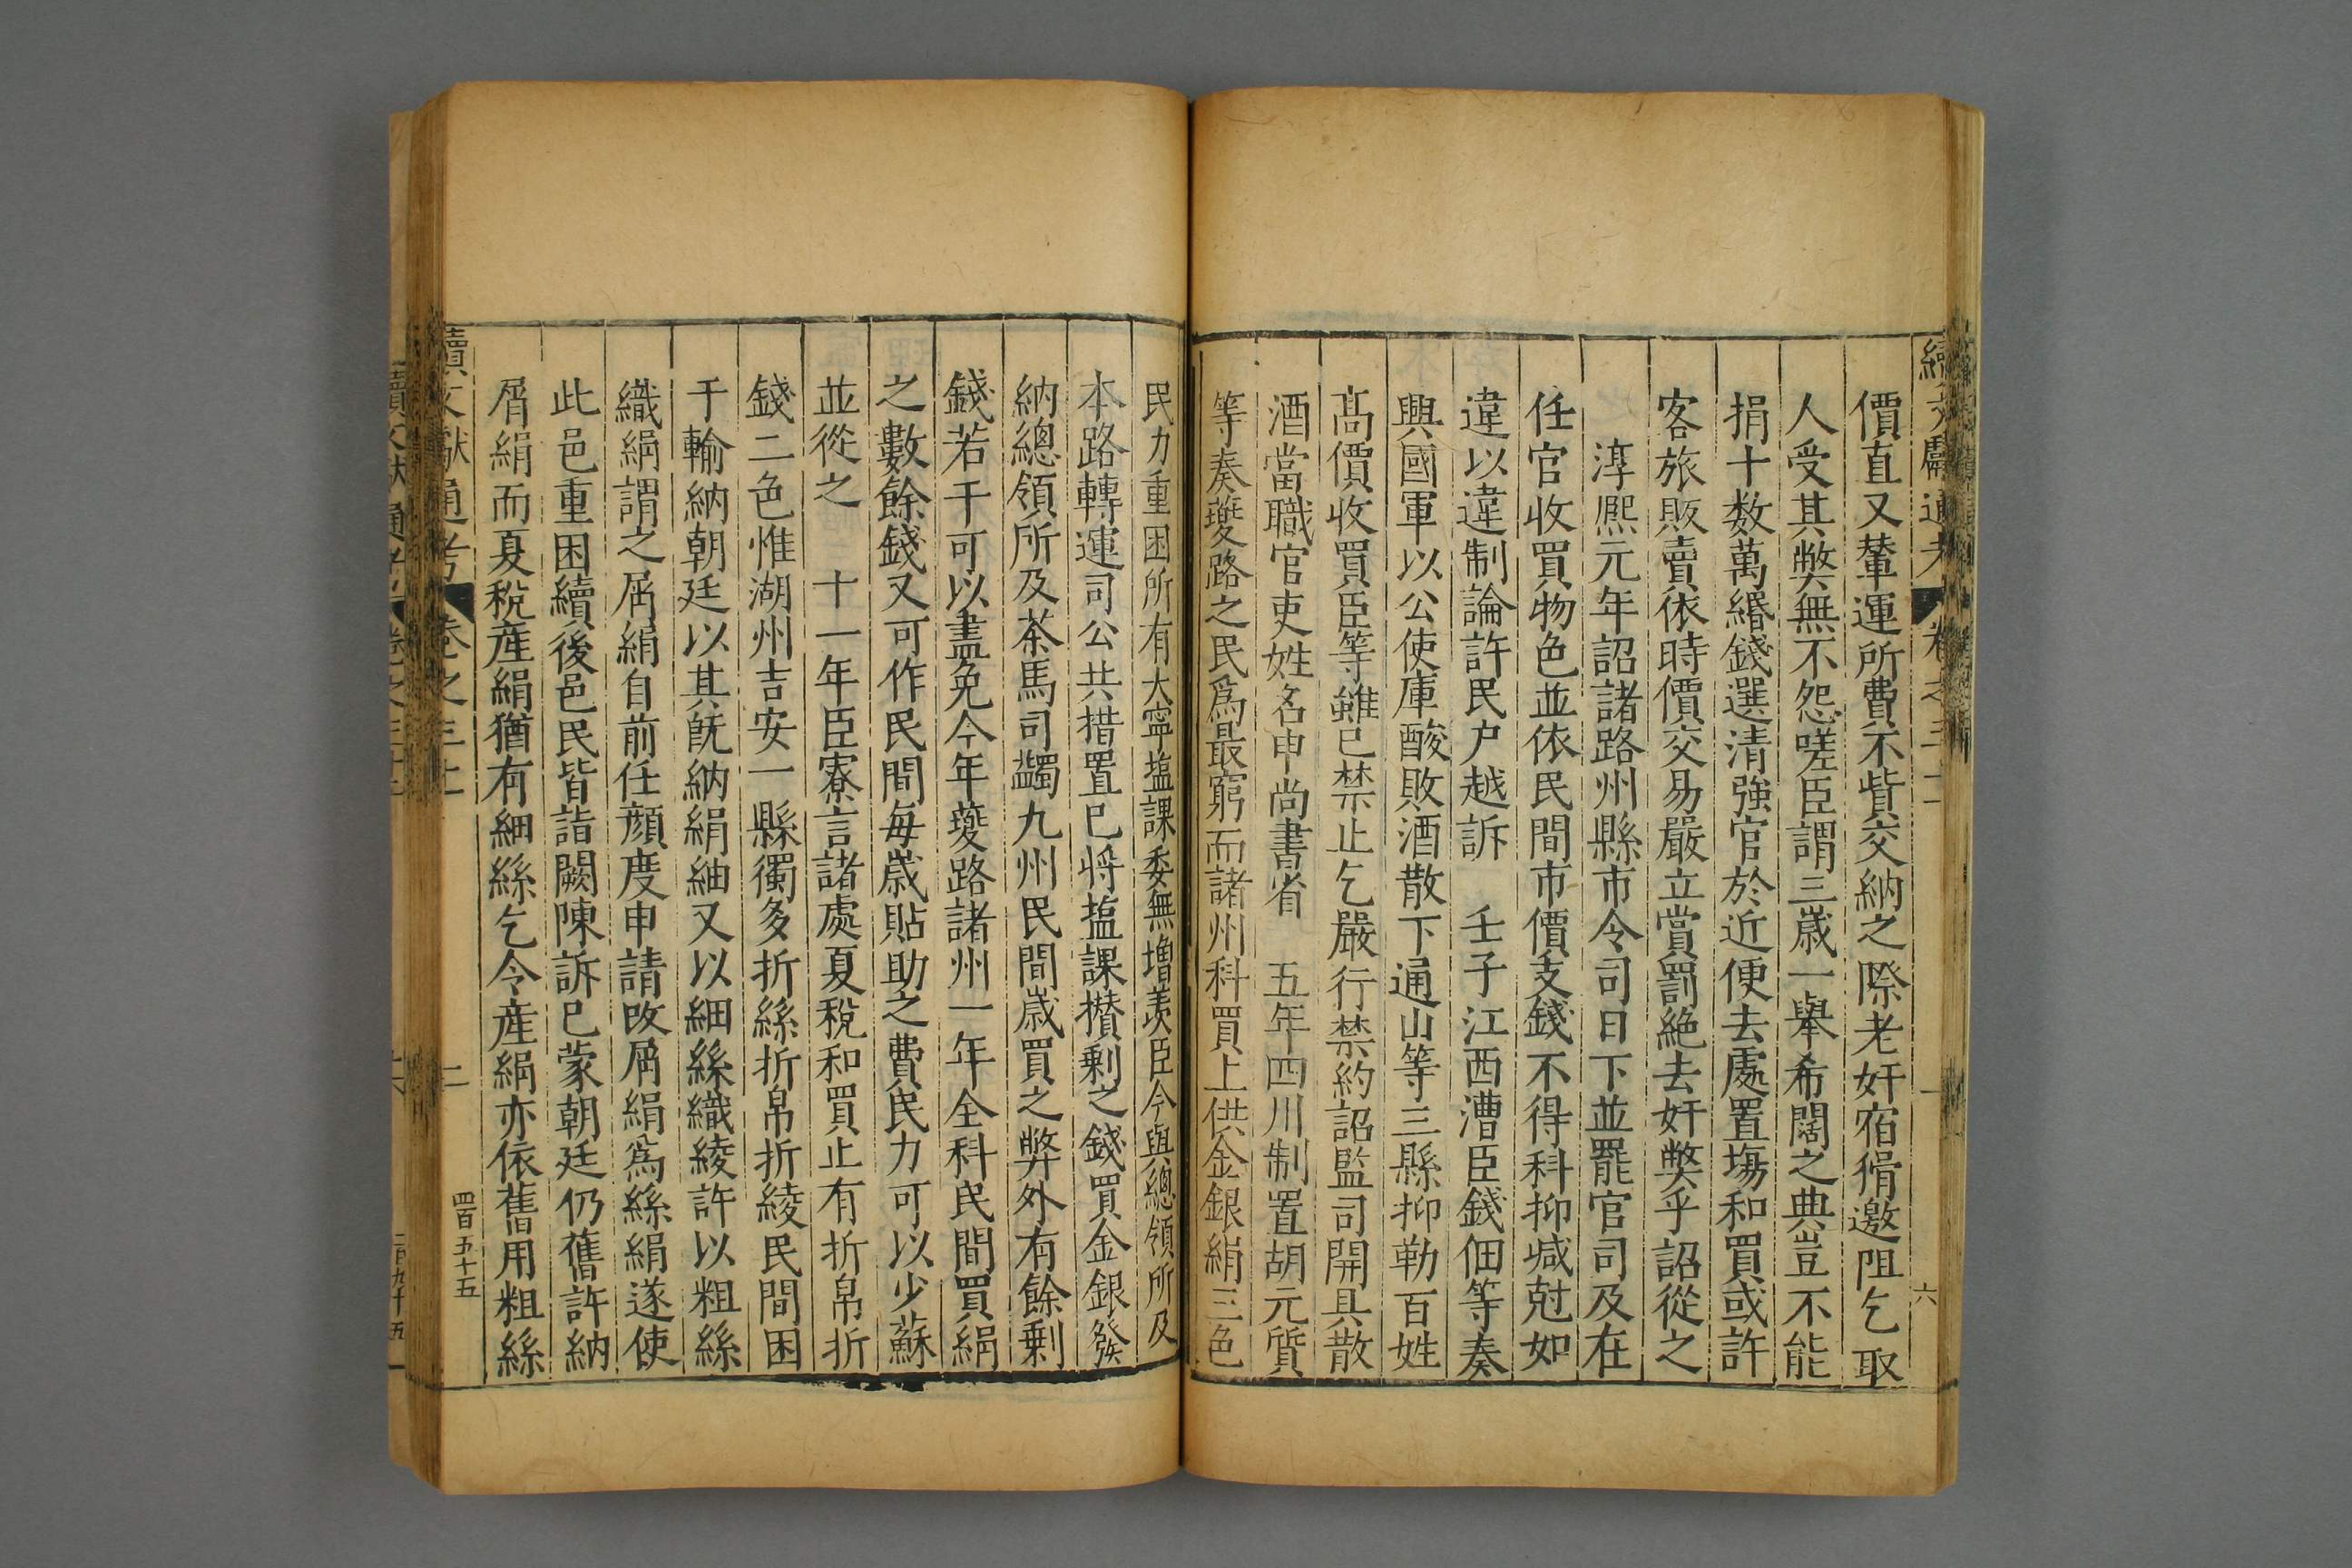 價直又輦運所費不貲交納之際老奸宿猾邀阻乞取
人受其弊無不怨嗟臣謂三歲一舉希闊之典豈不能
捐十数萬緡錢選清強官於近便去處置塲和買或許
客旅販賣依時價交易嚴立賞罰絶去奸弊乎詔從之
淳熈元年詔諸路州縣市令司日下並罷官司及在
任官收買物色並依民間市價支錢不得科抑減尅如
違以違制論許民户越訴　壬子江西漕臣錢佃等奏
興國軍以公使庫酸敗酒散下通山等三縣抑勒百姓
髙價收買臣等雖已禁止乞嚴行禁約詔監司開具散
酒當職官吏姓名申尚書省　五年四川制置胡元質
等奏夔路之民爲最窮而諸州科買上供金銀絹三色
民力重困所有大寧塩課委無增羨臣今與總領所及
本路轉運司公共措置已将塩課攅剩之錢買金銀發
納總領所及茶馬司蠲九州民間歲買之弊外有餘剩
錢若干可以盡免今年夔路諸州一年全科民間買絹
之數餘錢又可作民間每歲貼助之費民力可以少蘇
並從之　十一年臣寮言諸處夏稅和買止有折帛折
錢二色惟湖州吉安一縣獨多折絲折帛折綾民間困
于輸納朝廷以其旣納絹紬又以細絲織綾許以粗絲
織絹謂之屑絹自前任顏度申請改屑絹爲絲絹遂使
此邑重困續後邑民皆詣闕陳訴已蒙朝廷仍舊許納
屑絹而夏稅産絹猶有細絲乞令産絹亦依舊用粗絲
續文獻通考　卷之三十一　二　四百五十五